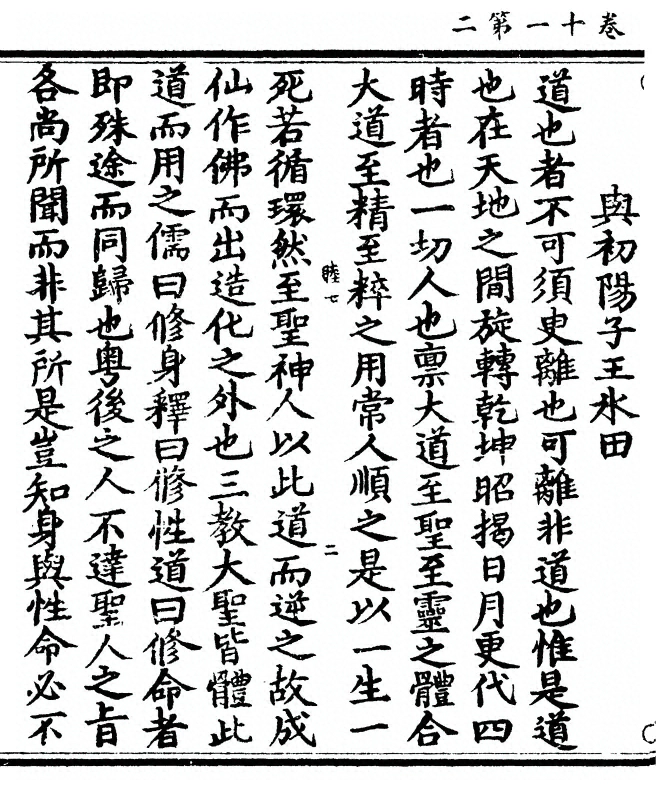 卷十一第二
與初陽子王氷田
道也者不可須臾離也可離非道也惟是道
也在天地之間旋轉乾坤昭揭日月更代四
時者也一切人也禀大道至聖至靈之體合
大道至精至粹之用常人順之是以一生一
睦七
二
死若循環然至聖神人以此道而逆之故成
仙作佛而出造化之外也三教大聖皆體此
道而用之儒曰修身釋曰修性道曰修命者
即殊途而同歸也粤後之人不達聖人之旨
各尚所聞而非其所是豈知身與性命必不